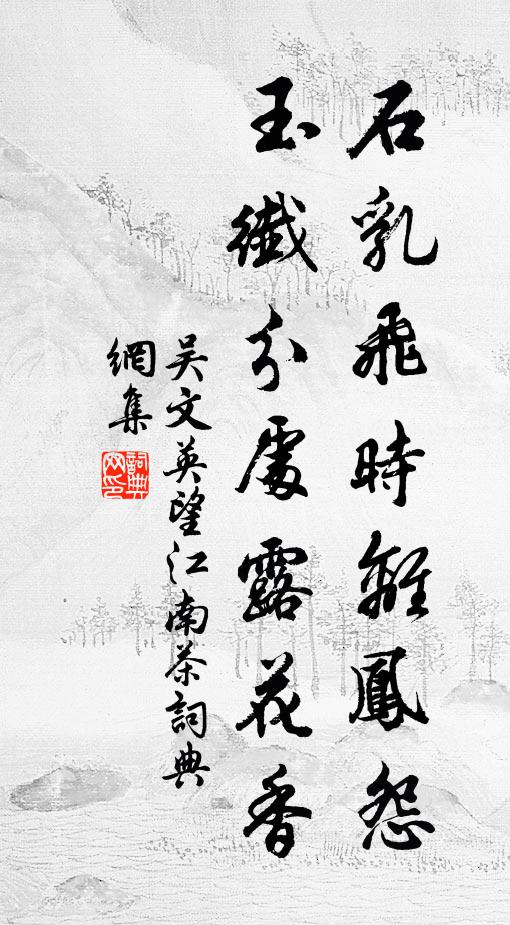 石乳飛時離鳳怨
玉纖分處露花香
吳文英望江南茶詞典
網集
詞典
網印